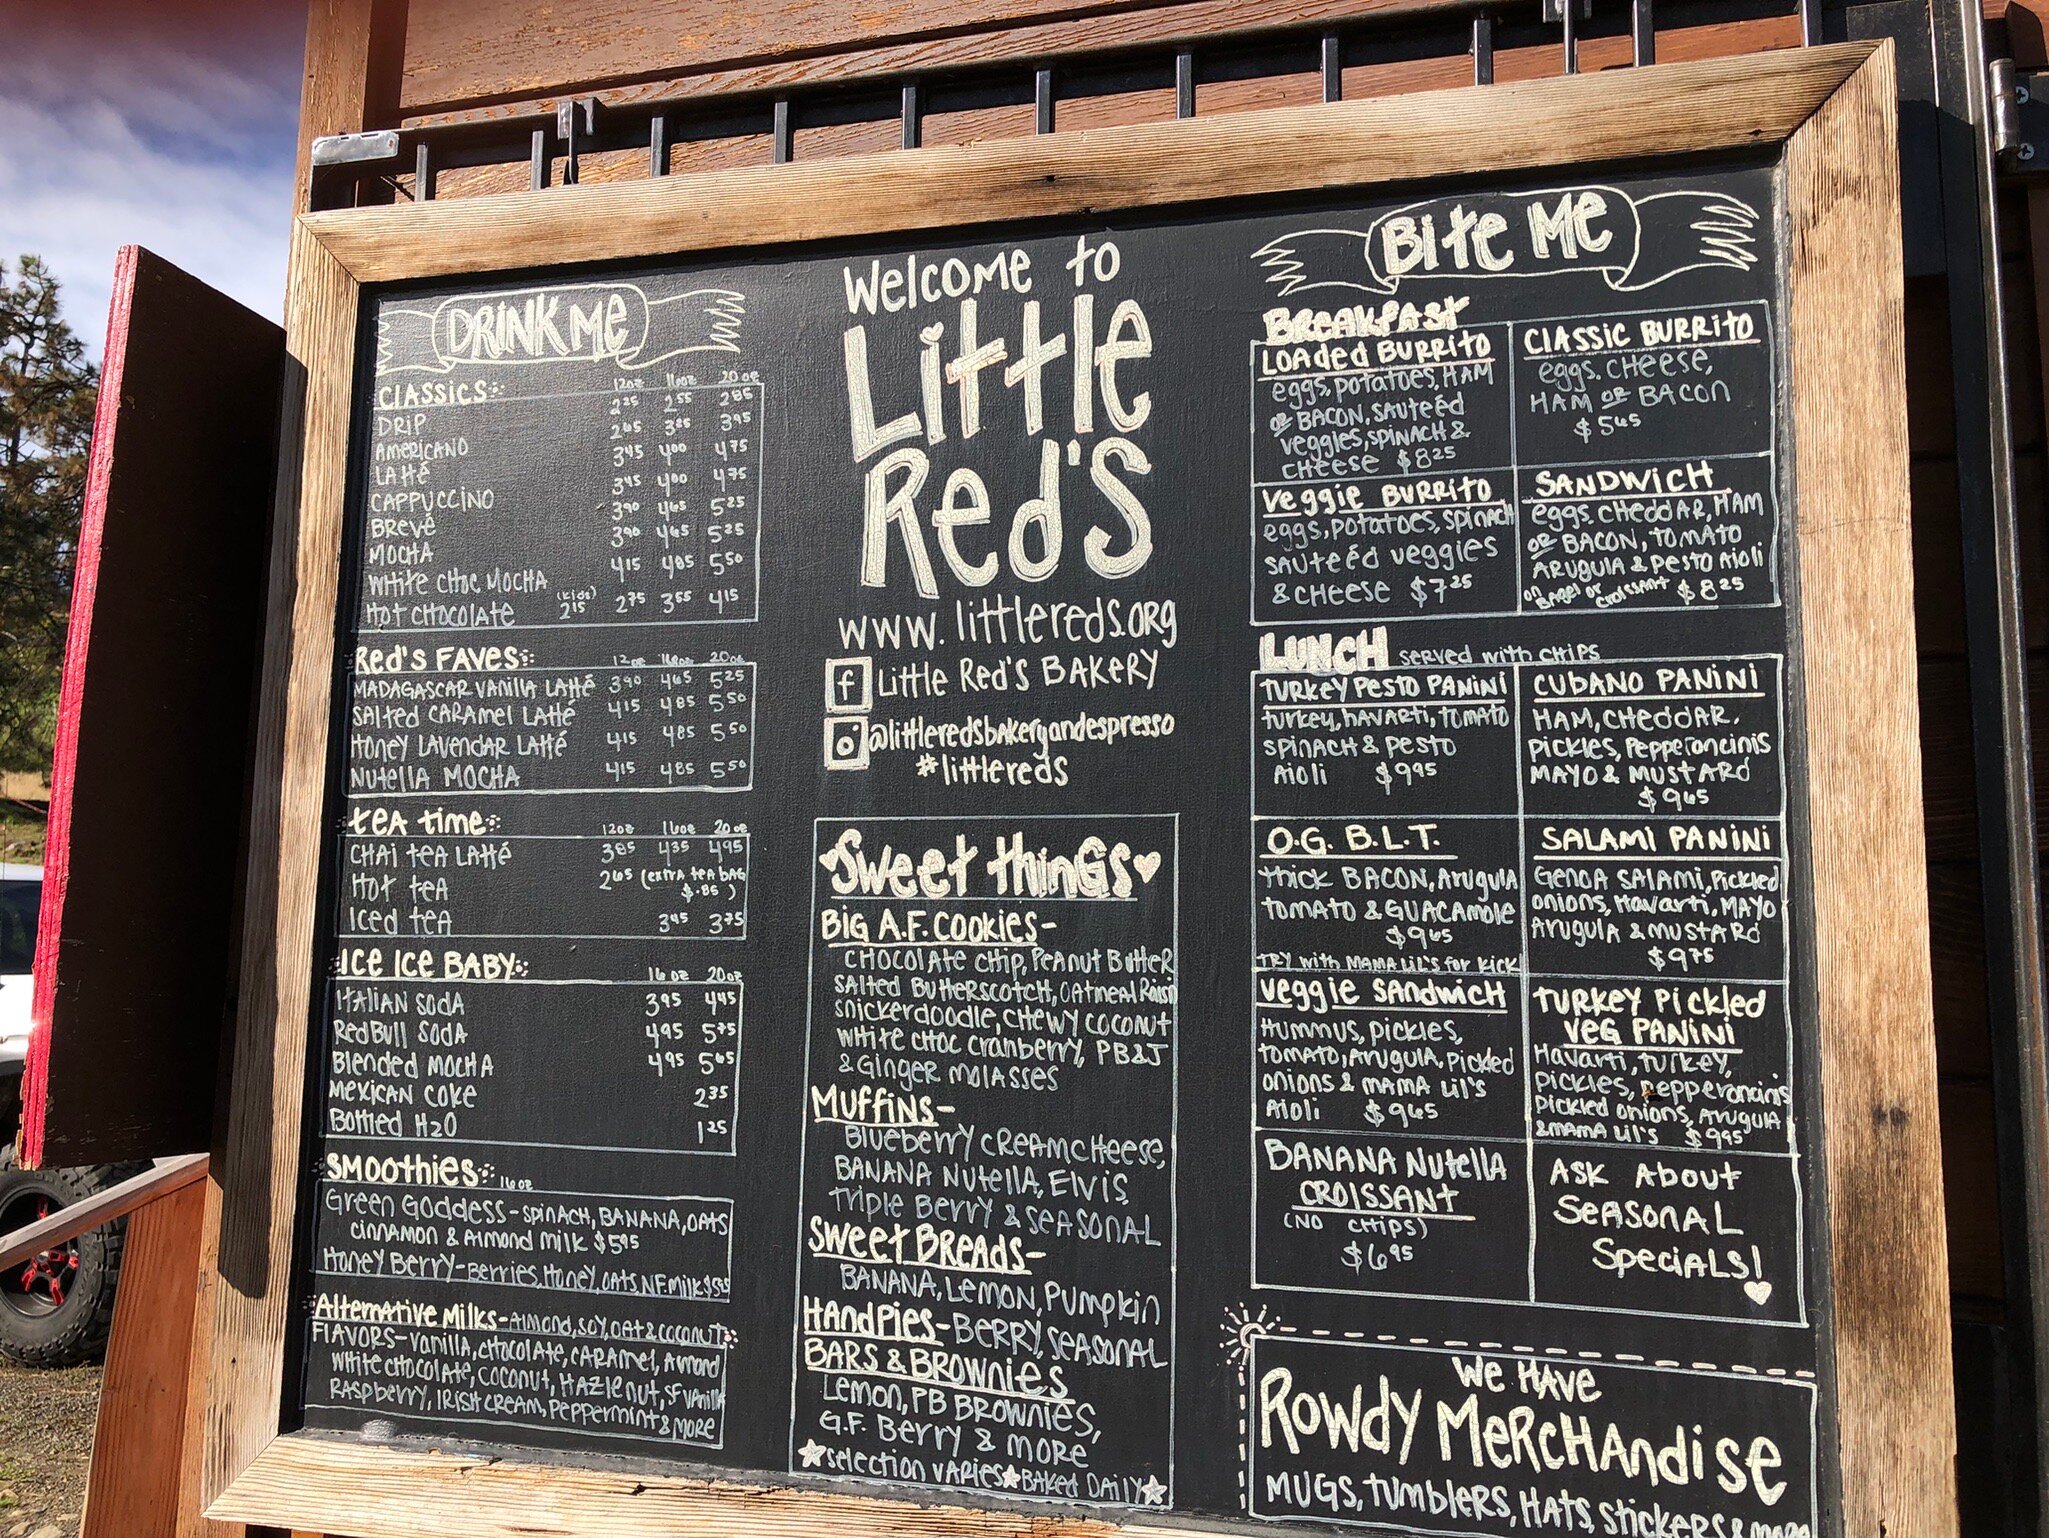 DRINK ME
CLASSICS 12oz 16oz 20oz
DRIP 2 25 2 55 2 85
AMERICANO 2 65 3 25 3 95
LATTÉ 3 45 4 00 4 75
CAPPUCCINO 3 45 4 00 4 75
BREVÉ 3 90 4 65 5 25
MOCHA 3 90 4 65 5 25
WHITE CHOC MOCHA 4 15 4 85 5 50
HOT CHOCOLATE (KIDS) 2 15 2 75 3 55 4 15
Red's FAVES 12oz 16oz 20oz
MADAGASCAR VANILLA LATTÉ 3 90 4 65 5 25
SALTED CARAMEL LATTÉ 4 15 4 85 5 50
HONEY LAVENDAR LATTÉ 4 15 4 85 5 50
NUTELLA MOCHA 4 15 4 85 5 50
TEA TIME 12oz 16oz 20oz
CHAI TEA LATTÉ 3 85 4 35 4 95
HOT TEA 2 65 (EXTRA TEA BAG
$.85)
ICED TEA 3 45 3 75
ICE ICE BABY 16oz 20oz
ITALIAN SODA 3 95 4 45
RED BULL SODA 4 95 5 75
BLENDED MOCHA 4 95 5 65
MEXICAN COKE 2 35
BOTTLED H2O 1 25
SMOOTHIES 16oz
GREEN GODDESS - SPINACH, BANANA, OATS
CINNAMON & ALMOND MILK $5 95
HONEY BERRY - BERRIES, HONEY, OATS, N.F. MILK
Alternative Milks - ALMOND, SOY, OAT & COCONUT
FLAVORS - VANILLA, CHOCOLATE, CARAMEL, ALMOND
WHITE CHOCOLATE, COCONUT, HAZLENUT, SF VANILLA
RASPBERRY, IRISH CREAM, PEPPERMINT & MORE
Welcome to
Little
Red's
www.littlereds.org
f Little Red's BAKERY
@littleredsbakeryandespresso
#littlereds
SWEET THINGS
BIG A.F. COOKIES -
CHOCOLATE CHIP, PEANUT BUTTER
SALTED BUTTERSCOTCH, OATMEAL RAISIN
SNICKERDOODLE, CHEWY COCONUT
WHITE CHOC CRANBERRY, PB&J
& GINGER MOLASSES
MUFFINS -
BLUEBERRY CREAMCHEESE,
BANANA NUTELLA, ELVIS,
TRIPLE BERRY & SEASONAL
SWEET BREADS -
BANANA, LEMON, PUMPKIN
HANDPIES - BERRY, SEASONAL
BARS & BROWNIES
LEMON, PB BROWNIES,
G.F. BERRY & MORE
SELECTION VARIES BAKED DAILY
Bite Me
BREAKFAST
LOADED BURRITO
EGGS, POTATOES, HAM
OR BACON, SAUTEÉD
VEGGIES, SPINACH &
CHEESE $8 25
CLASSIC BURRITO
EGGS, CHEESE,
HAM OR BACON
$5 65
VEGGIE BURRITO
EGGS, POTATOES, SPINACH
SAUTEÉD VEGGIES
& CHEESE $7 25
SANDWICH
EGGS, CHEDDAR, HAM
OR BACON, TOMATO
ARUGULA & PESTO AIOLI
ON BAGEL OR CROISSANT $8 25
LUNCH SERVED WITH CHIPS
TURKEY PESTO PANINI
TURKEY, HAVARTI, TOMATO
SPINACH & PESTO
AIOLI $9 95
CUBANO PANINI
HAM, CHEDDAR,
PICKLES, PEPPERONCINIS
MAYO & MUSTARD
$9 65
O.G. B.L.T.
THICK BACON, ARUGULA
TOMATO & GUACAMOLE
$9 65
TRY WITH MAMA LIL'S FOR KICK!
SALAMI PANINI
GENOA SALAMI, PICKLED
ONIONS, HAVARTI, MAYO
ARUGULA & MUSTARD
$9 75
VEGGIE SANDWICH
HUMMUS, PICKLES,
TOMATO, ARUGULA, PICKLED
ONIONS & MAMA LIL'S
AIOLI $9 65
TURKEY PICKLED
VEG PANINI
HAVARTI, TURKEY,
PICKLES, PEPPERONCINIS
PICKLED ONIONS, ARUGULA
& MAMA LIL'S $9 95
BANANA NUTELLA
CROISSANT
(NO CHIPS)
$6 95
ASK ABOUT
SEASONAL
SPECIALS!
WE HAVE
ROWDY MERCHANDISE
MUGS, TUMBLERS, HATS, STICKERS & MORE